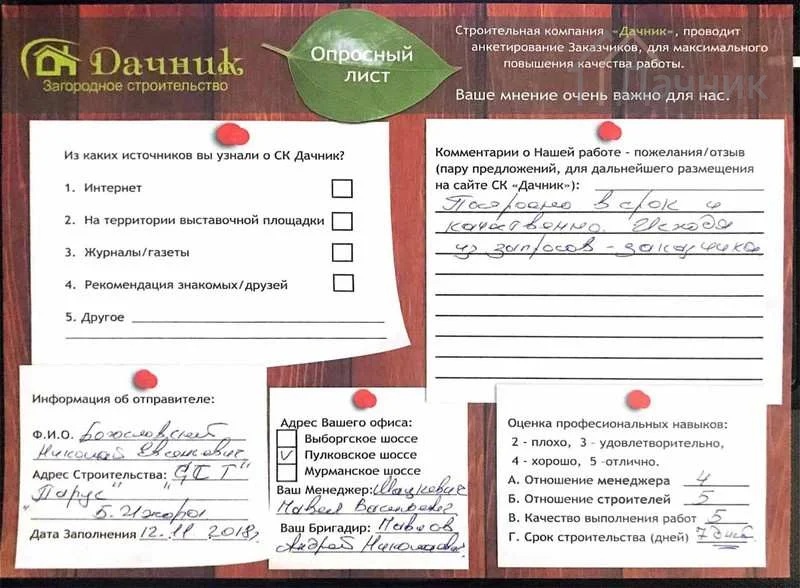 Дачник
Загородное строительство
Опросный
лист
Строительная компания «Дачник», проводит
анкетирование Заказчиков, для максимального
повышения качества работы.
Ваше мнение очень важно для нас.
Дачник
Из каких источников вы узнали о СК Дачник?
1. Интернет
2. На территории выставочной площадки
3. Журналы/газеты
4. Рекомендация знакомых/друзей
5. Другое
Комментарии о Нашей работе - пожелания/отзыв
(пару предложений, для дальнейшего размещения
на сайте СК «Дачник»):
Построено в срок и
качественно. Исходя
из запросов - заказчика
Информация об отправителе:
Ф.И.О. Богословский
Николай Евгеньевич
Адрес Строительства: "СТ"
Парус"
Б. Ижора
Дата Заполнения 12.11 2018г
Адрес Вашего офиса:
Выборгское шоссе
V Пулковское шоссе
Мурманское шоссе
Ваш Менеджер: Мацкевич
Павел Васильевич
Ваш Бригадир: Павлов
Андрей Николаевич
Оценка профессиональных навыков:
2 - плохо, 3 - удовлетворительно,
4 - хорошо, 5 -отлично.
А. Отношение менеджера 4
Б. Отношение строителей 5
В. Качество выполнения работ 5
Г. Срок строительства (дней) 7 дней